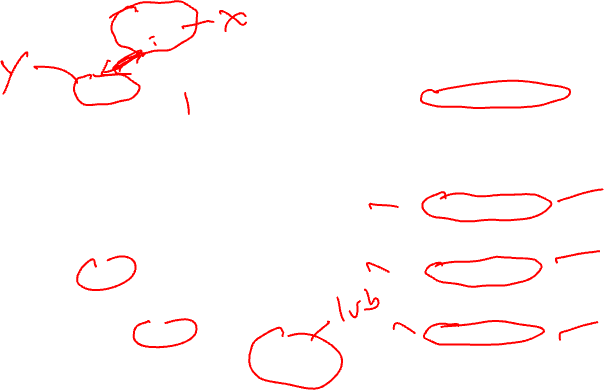 x
Y
lub